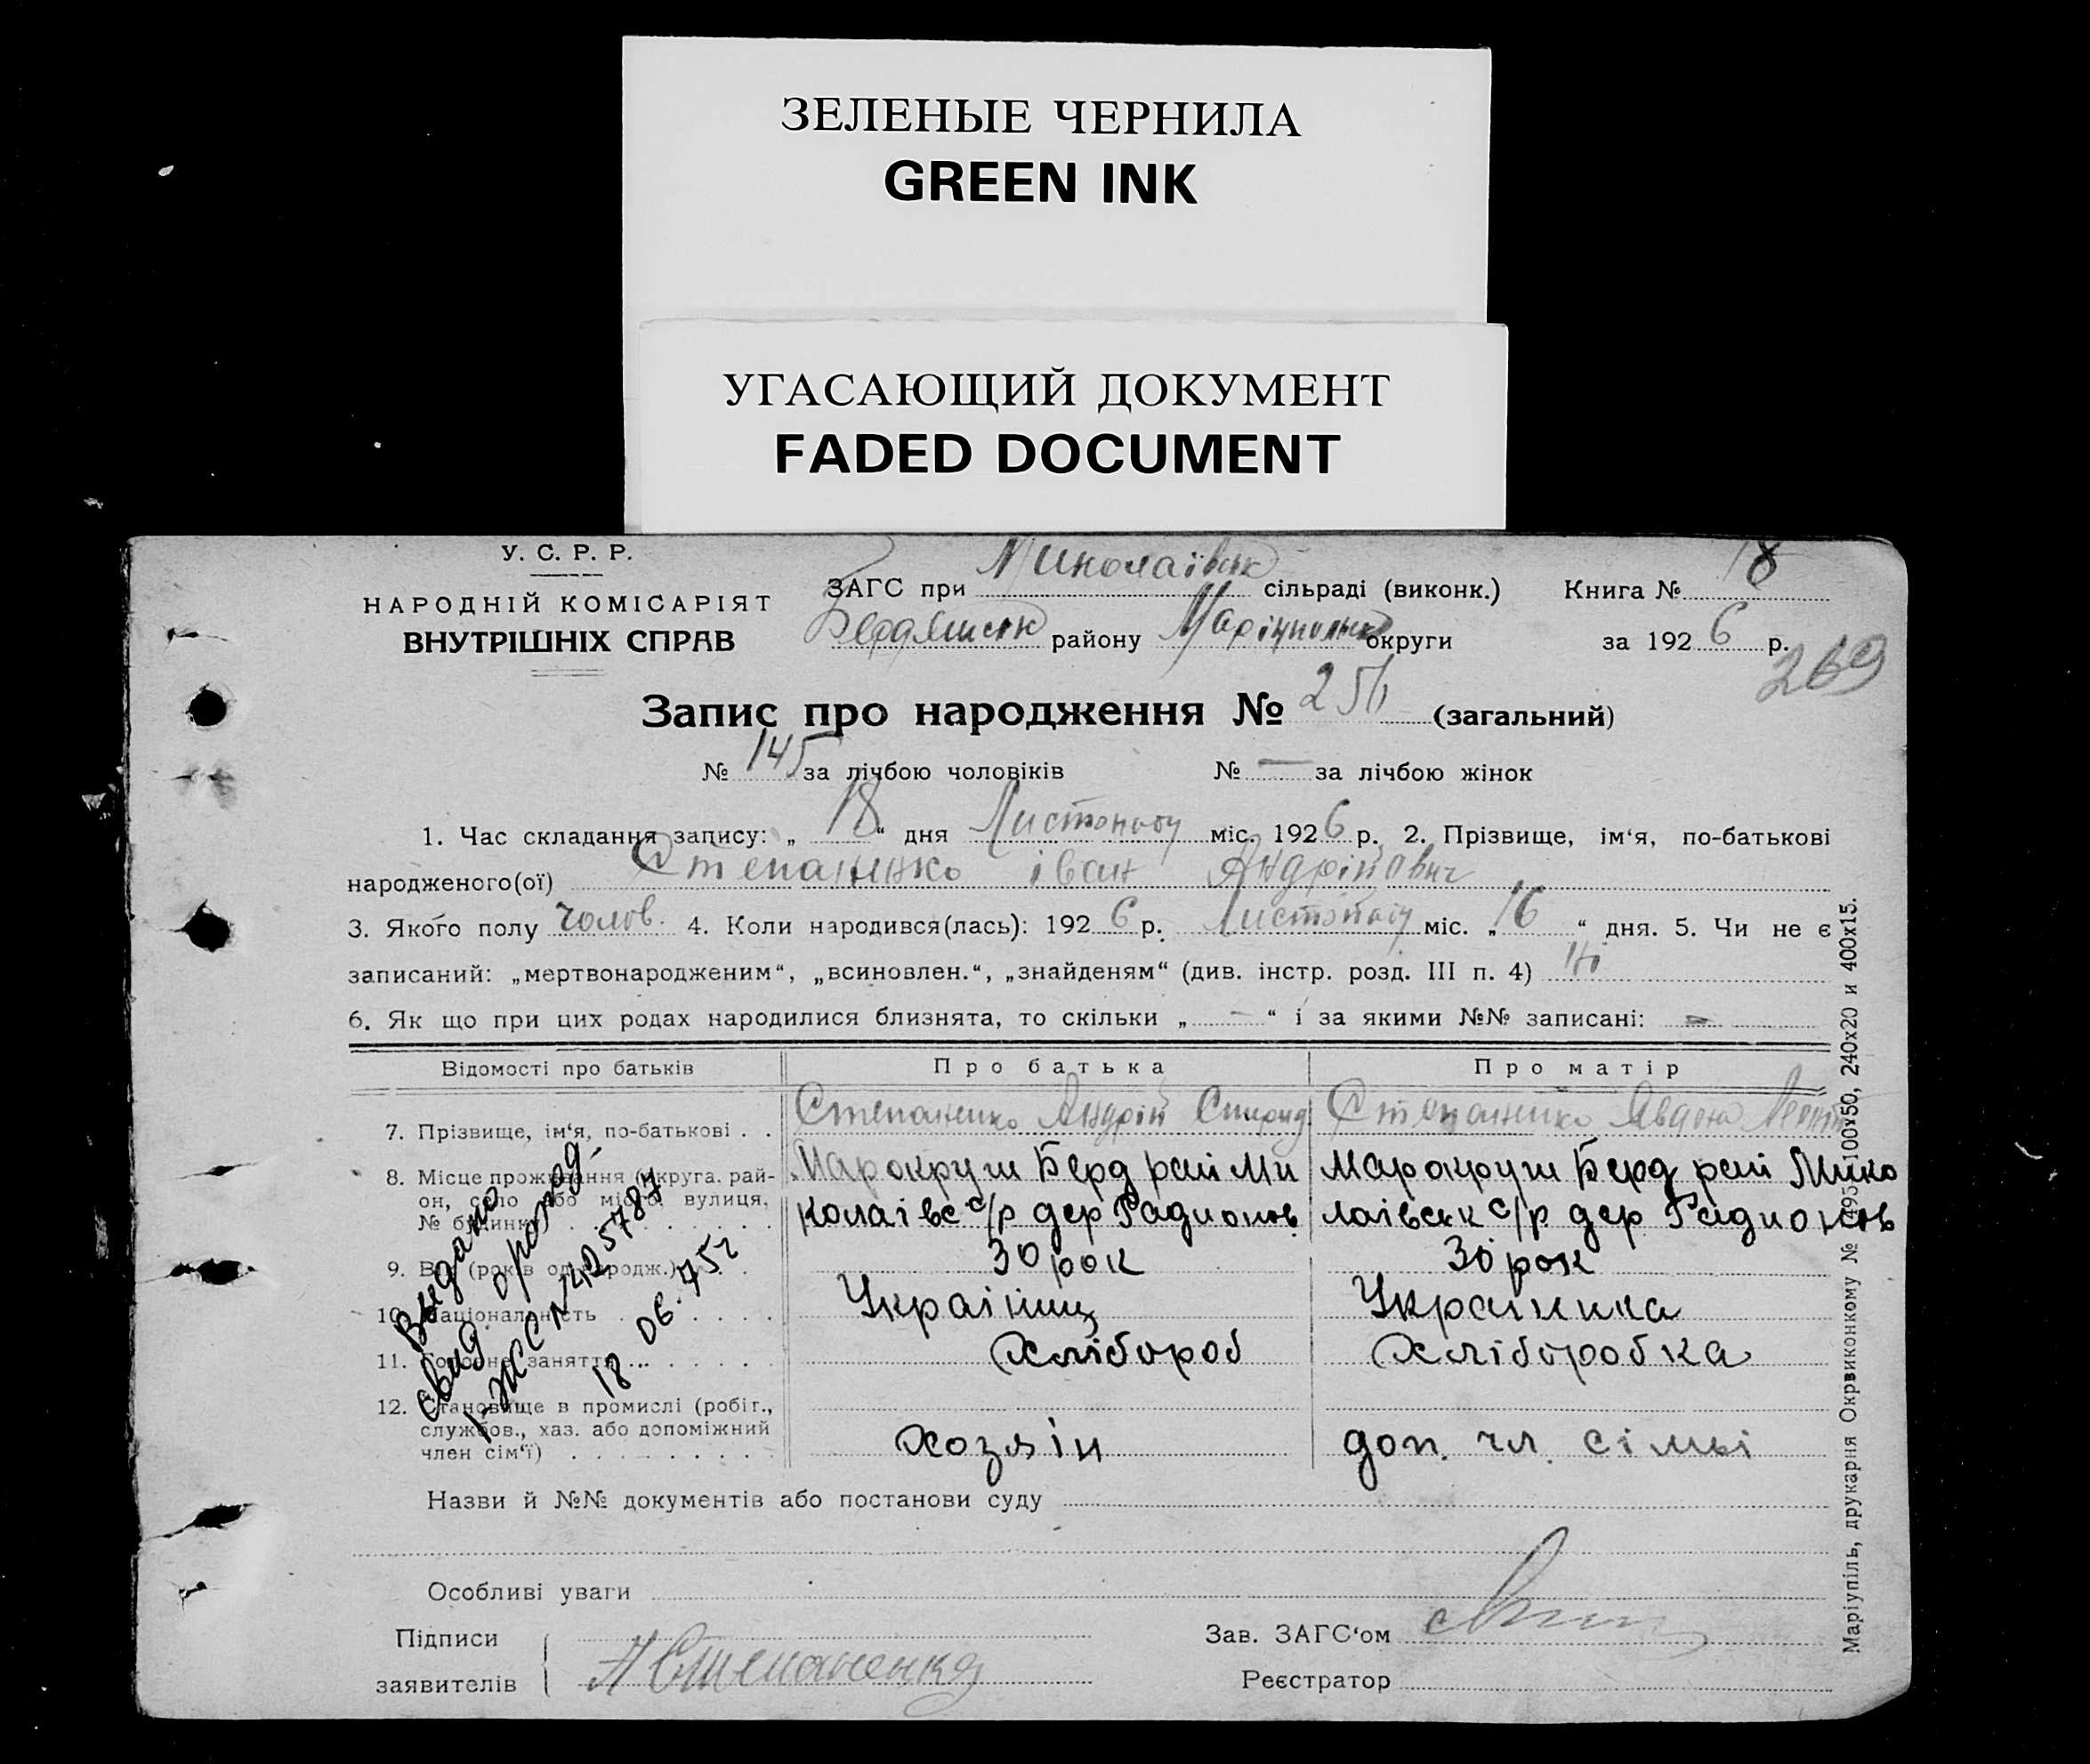 ЗЕЛЕНЫЕ ЧЕРНИЛА
GREEN INK
УГАСАЮЩИЙ ДОКУМЕНТ
FADED DOCUMENT
У. С. Р. Р.
НАРОДНІЙ КОМІСАРІЯТ
ВНУТРІШНІХ СПРАВ
ЗАГС при Миколаївськ сільраді (виконк.) Книга № 18
Бердянськ району Маріупольськ округи за 1926 р.
269
Запис про народження № 256 (загальний)
№ 145 за лічбою чоловіків № — за лічбою жінок
1. Час складання запису: „ 18 “ дня Листопаду міс. 1926 р. 2. Прізвище, ім‘я, по-батькові
народженого(ої) Степаненко іван Андрійович
3. Якого полу чолов. 4. Коли народився(лась): 1926 р. Листопаду міс. „ 16 “ дня. 5. Чи не є
записаний: „мертвонародженим“, „всиновлен.“, „знайденям“ (див. інстр. розд. III п. 4) ні
6. Як що при цих родах народилися близнята, то скільки „ - “ і за якими №№ записані: -
Відомості про батьків Про батька Про матір
7. Прізвище, ім‘я, по-батькові . . Степаненко Андрій Спирид Степаненко Явдоха
8. Місце проживання (округа, рай-
он, село або місто, вулиця,
№ будинку) . . .
Марокруги Берд рай Ми
колаівс с/р дер Радионов
Марокруги Берд рай Мико
лаівськ с/р дер Радионов
9. Вік (років од народж.) . . 30 рок 30 рок
10. Національність . . . Українц Украінка
11. Головне заняття . . . Хлібороб Хліборобка
12. Становище в промислі (робіт.,
службов., хаз. або допоміжний
член сім‘ї) . . .
хозяін доп. чл. сімьі
Выдано
свид о рожд
18 06.75г
Назви й №№ документів або постанови суду
Особливі уваги
Підписи
заявителів
А Степаненко
Зав. ЗАГС‘ом
Реєстратор
Маріупіль, друкарня Окрвиконкому № 495 100x50, 240x20 и 400x15.